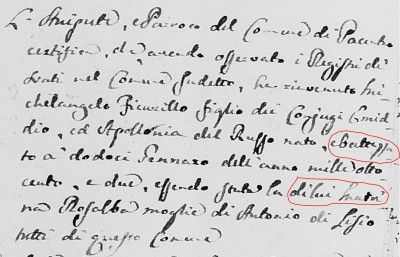 L'Arciprete, e Parroco del Comune di Pacentro
certifica, che avendo osservato i Registri di
Nati nel Comune sudetto, ha rinvenuto Mi-
chelangelo figlio dei Conjugi Emid-
dio, ed Apollonia del Russo nato, e battezza-
to a' dodeci Gennaro dell'anno mille otto
cento, e due, essendo stata la di lui Matri-
na Rosalba moglie di Antonio di Lisio
tutti di questo Comune